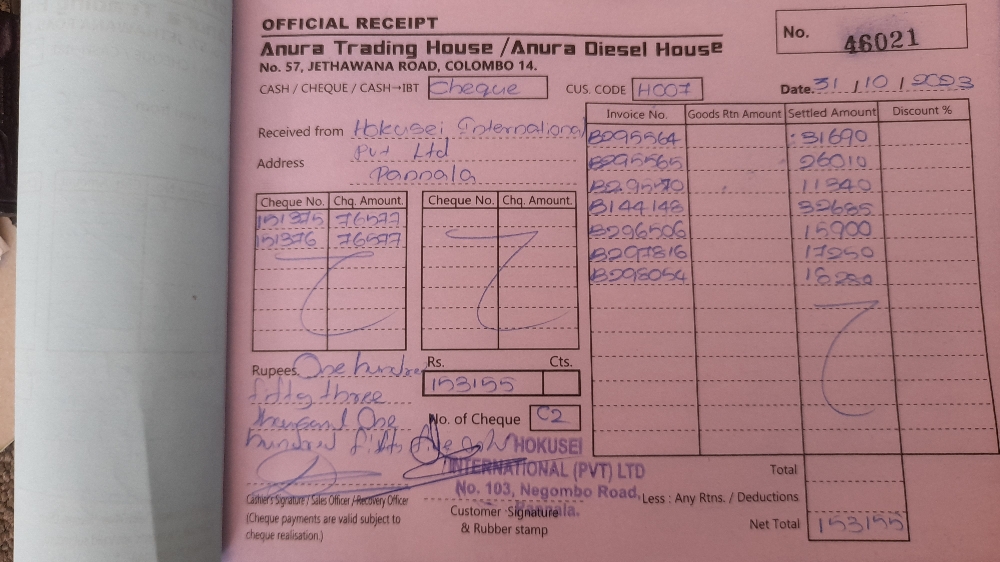 OFFICIAL RECEIPT
No. 46021
Anura Trading House / Anura Diesel House
No. 57, JETHAWANA ROAD, COLOMBO 14.
CASH / CHEQUE / CASH→IBT Cheque CUS. CODE H007 Date. 31 / 10 / 2023
Received from Hokusei International
Pvt Ltd
Address Pannala
Cheque No. Chq. Amount. Cheque No. Chq. Amount.
151375 76577
151376 76577
Invoice No. Goods Rtn Amount Settled Amount Discount %
B295564 31690
B295565 26010
B295570 11340
B144148 32685
B296506 15900
B297816 17250
B298054 18280
Rupees One hundred
fifty three
thousand One
hundred fifty five
Rs. Cts.
153155
No. of Cheque 02
HOKUSEI
INTERNATIONAL (PVT) LTD
No. 103, Negombo Road,
Pannala.
Cashier's Signature / Sales Officer / Recovery Officer
(Cheque payments are valid subject to
cheque realisation.)
Customer Signature
& Rubber stamp
Total
Less : Any Rtns. / Deductions
Net Total 153155